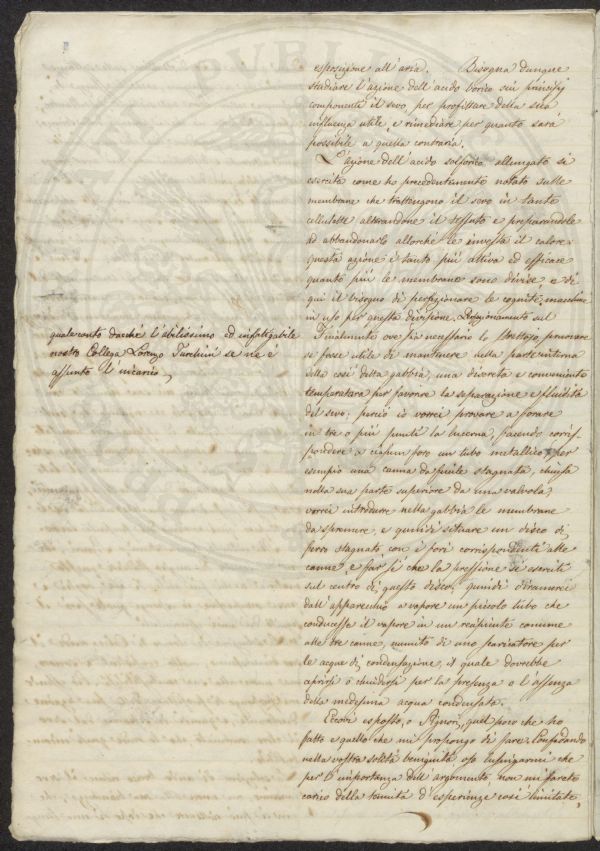 esposizione all'aria. Bisogna dunque
studiare l'azione dell'acido borico sui principj
componenti il sevo, per profittare della sua
influenza utile, e rimediare per quanto sarà
possibile a quella contraria.
L'azione dell'acido solforico allungato si
esercita come ho precedentemente notato sulle
membrane che trattengono il sevo in tante
cellulette alterandone il tessuto e preparandole
ad abbandonarlo allorchè le investa il calore:
questa azione è tanto più attiva ed efficace
quanto più le membrane sono divise, e di
qui il bisogno di perfezionare le cognite macchine
in uso per questa divisione,
qual conto dacchè l'abilissimo ed infatigabile
nostro Collega Lorenzo Turchini se ne è
assunto l'incarico,
Finalmente ove sia necessario lo strettojo, provarsi
se fosse utile di mantenere nella parte interna
della così detta gabbia, una discreta e conveniente
temperatura per favorire la separazione e fluidità
del sevo; perciò io vorrei provare a forare
in tre o più punti la lucerna, facendo corris-
pondere a ciascun foro un tubo metallico per
esempio una canna da fucile stagnata, chiusa
nella sua parte superiore da una valvola;
vorrei introdurre nella gabbia le membrane
da spremere, e quindi situare un disco di
ferro stagnato con i fori corrispondenti alle
canne, e far sì che la pressione si eserciti
sul centro di questo disco; quindi diramerei
dall'apparecchio a vapore un piccolo tubo che
conducesse il vapore in un recipiente comune
alle tre canne, munito di uno scaricatore per
le acque di condensazione, il quale dovrebbe
aprirsi o chiudersi per la presenza o l'assenza
della medesima acqua condensata.
Eccovi esposto, o Signori, quel poco che ho
fatto e quello che mi propongo di fare. Confidando
nella vostra solita benignità oso lusingarmi che
per l'importanza dell'argomento non mi farete
carico della tenuità d'esperienze così limitate,